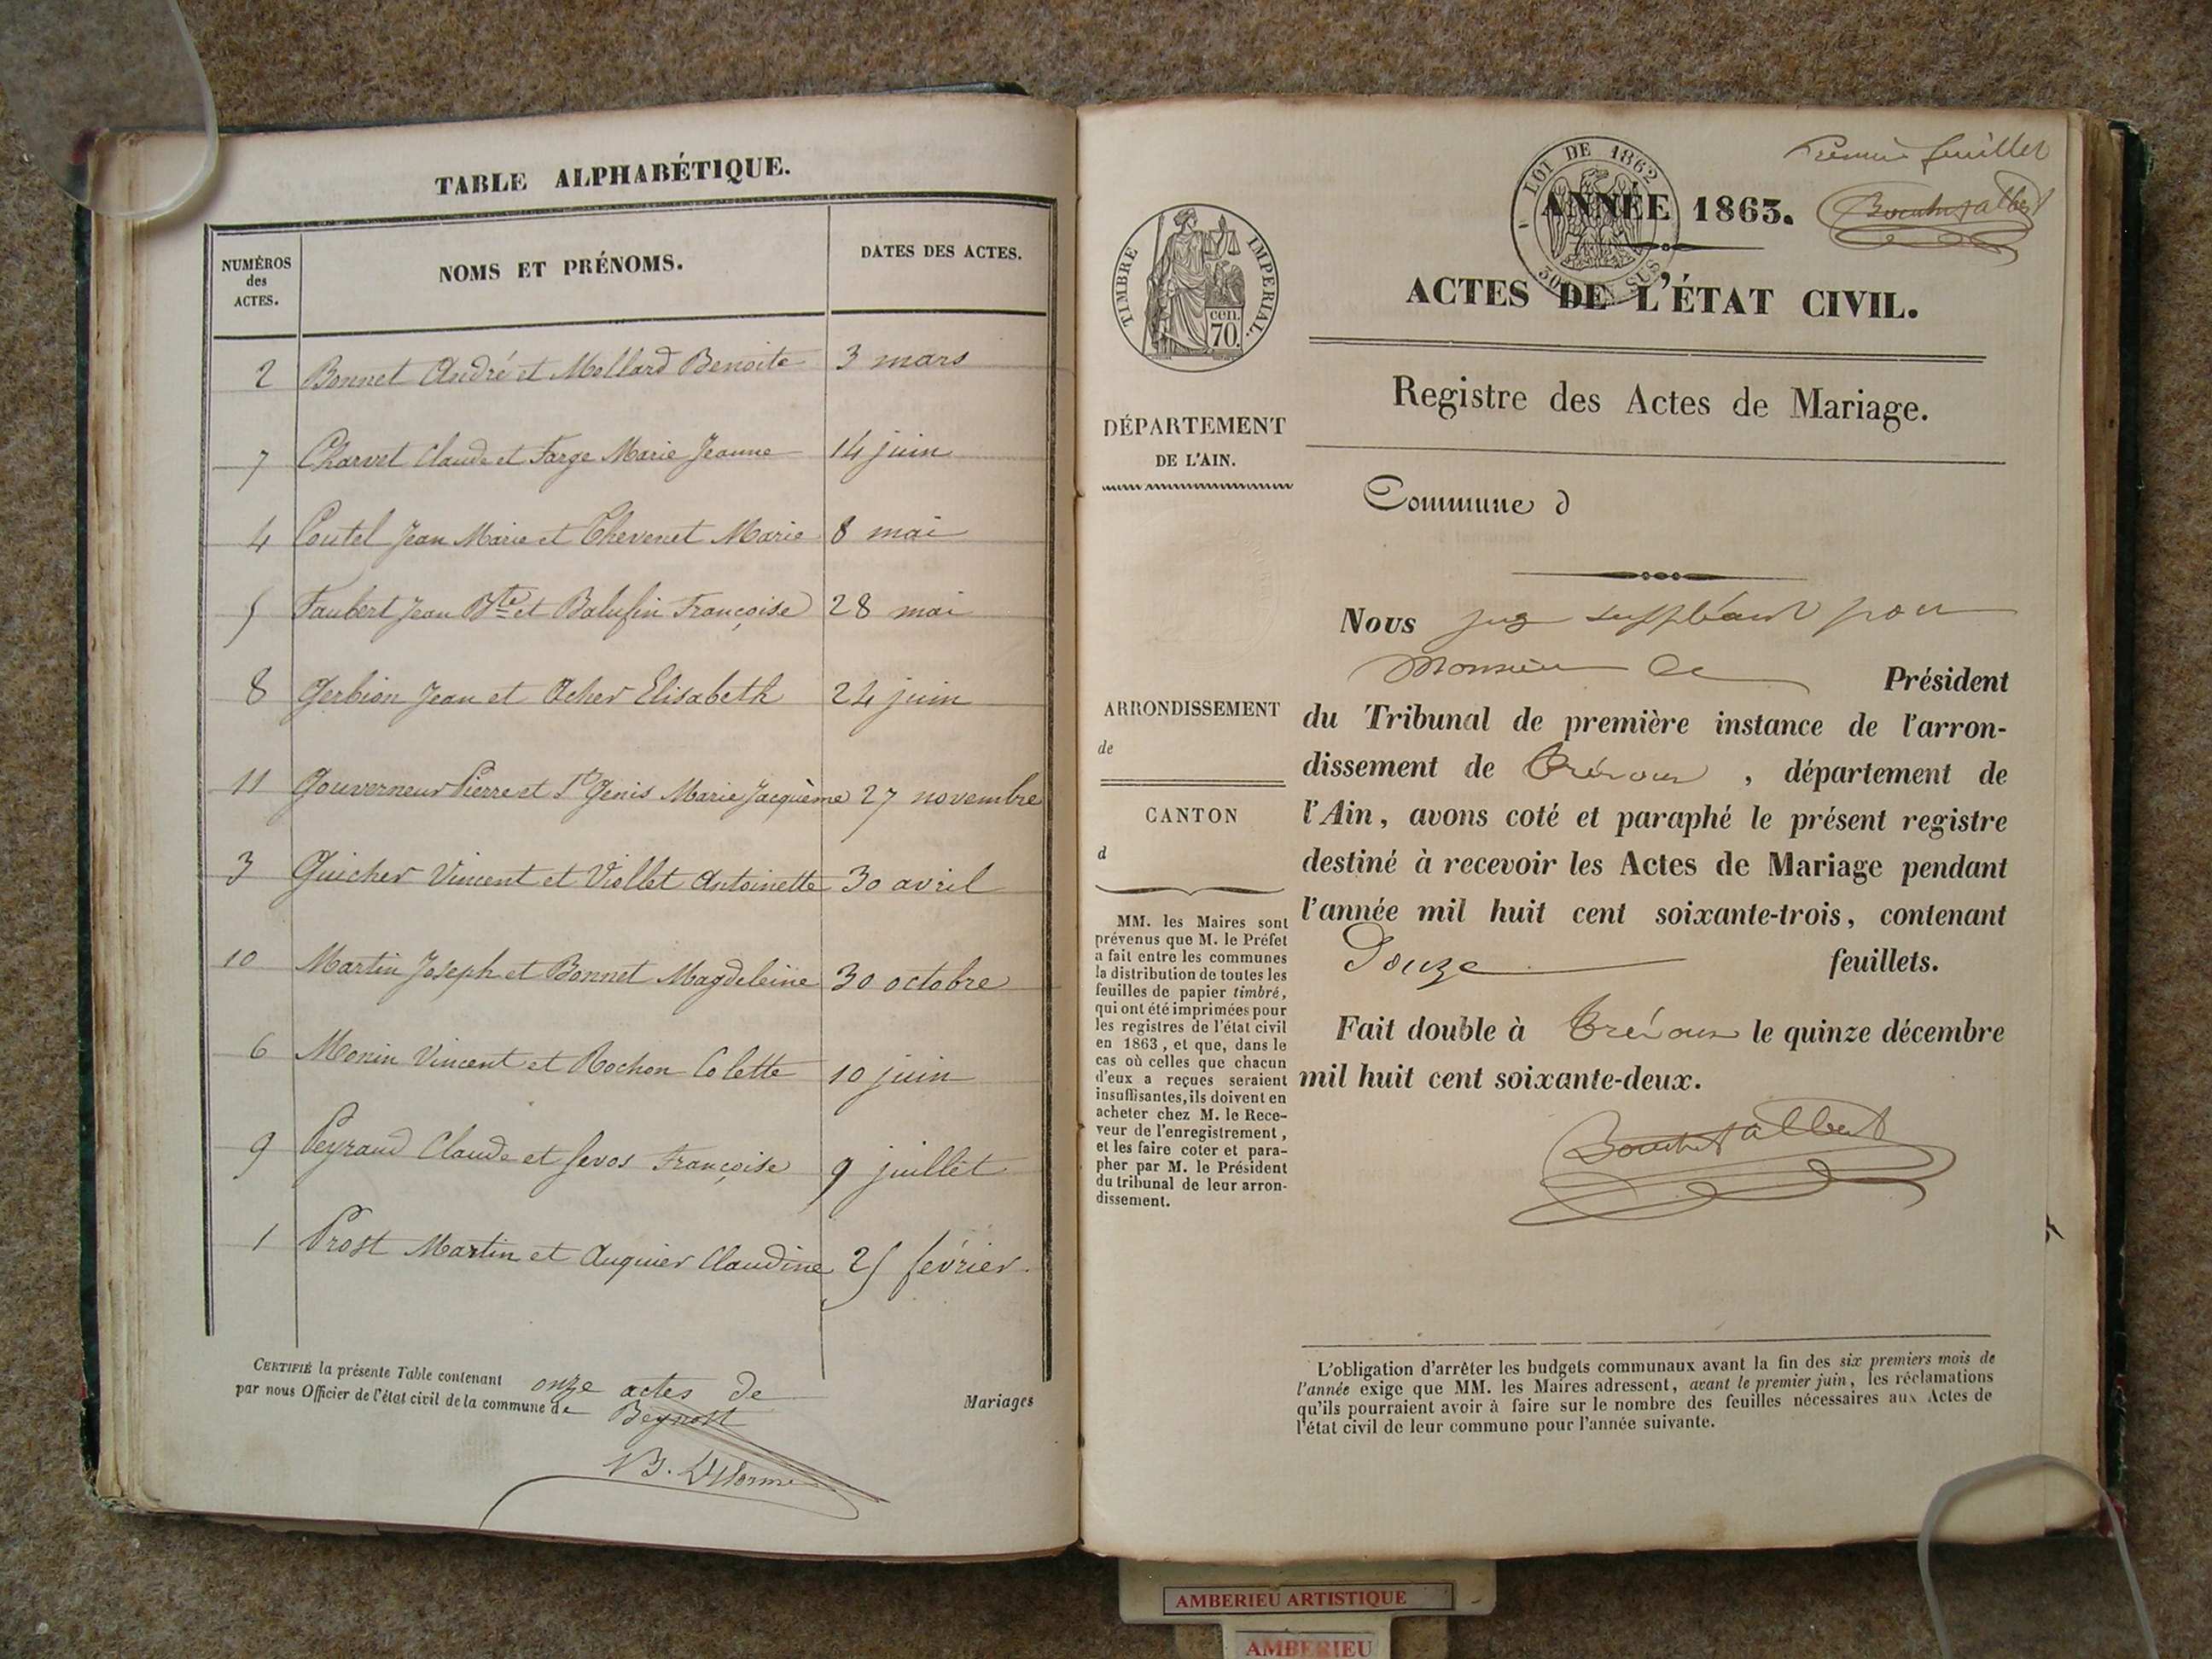 TABLE ALPHABÉTIQUE.
NUMÉROS
des
ACTES.
NOMS ET PRÉNOMS.
DATES DES ACTES.
2 Bonnet André et Mollard Benoite 3 mars
7 Charvet Claude et Farge Marie Jeanne 14 juin
4 Coutel Jean Marie et Thevenet Marie 8 mai
5 Faubert Jean Bte et Balufin Françoise 28 mai
8 Gerbion Jean et Acher Elisabeth 24 juin
11 Gouverneur Pierre et St Genis Marie Jacquème 27 novembre
3 Guicher Vincent et Viollet Antoinette 30 avril
10 Martin Joseph et Bonnet Magdeleine 30 octobre
6 Monin Vincent et Rochon Colette 10 juin
9 Peyraud Claude et Françoise 9 juillet
1 Prost Martin et Auquier Claudine 25 février
CERTIFIÉ la présente Table contenant onze actes de Mariages
par nous Officier de l'état civil de la commune de Beynost
B. Delorme
Premier feuillet
LOI DE 1862
ANNÉE 1863.
TIMBRE IMPÉRIAL.
cen.
70.
ACTES DE L'ÉTAT CIVIL.
Registre des Actes de Mariage.
DÉPARTEMENT
DE L'AIN.
Commune d
ARRONDISSEMENT
de
CANTON
d
MM. les Maires sont
prévenus que M. le Préfet
a fait entre les communes
la distribution de toutes les
feuilles de papier timbré,
qui ont été imprimées pour
les registres de l'état civil
en 1863, et que, dans le
cas où celles que chacun
d'eux a reçues seraient
insuffisantes, ils doivent en
acheter chez M. le Rece-
veur de l'enregistrement,
et les faire coter et para-
pher par M. le Président
du tribunal de leur arron-
dissement.
Nous juge suppléant pour
Monsieur le Président
du Tribunal de première instance de l'arron-
dissement de Trévoux, département de
l'Ain, avons coté et paraphé le présent registre
destiné à recevoir les Actes de Mariage pendant
l'année mil huit cent soixante-trois, contenant
Douze feuillets.
Fait double à Trévoux le quinze décembre
mil huit cent soixante-deux.
L'obligation d'arrêter les budgets communaux avant la fin des six premiers mois de
l'année exige que MM. les Maires adressent, avant le premier juin, les réclamations
qu'ils pourraient avoir à faire sur le nombre des feuilles nécessaires aux Actes de
l'état civil de leur commune pour l'année suivante.
AMBERIEU ARTISTIQUE
AMBERIEU